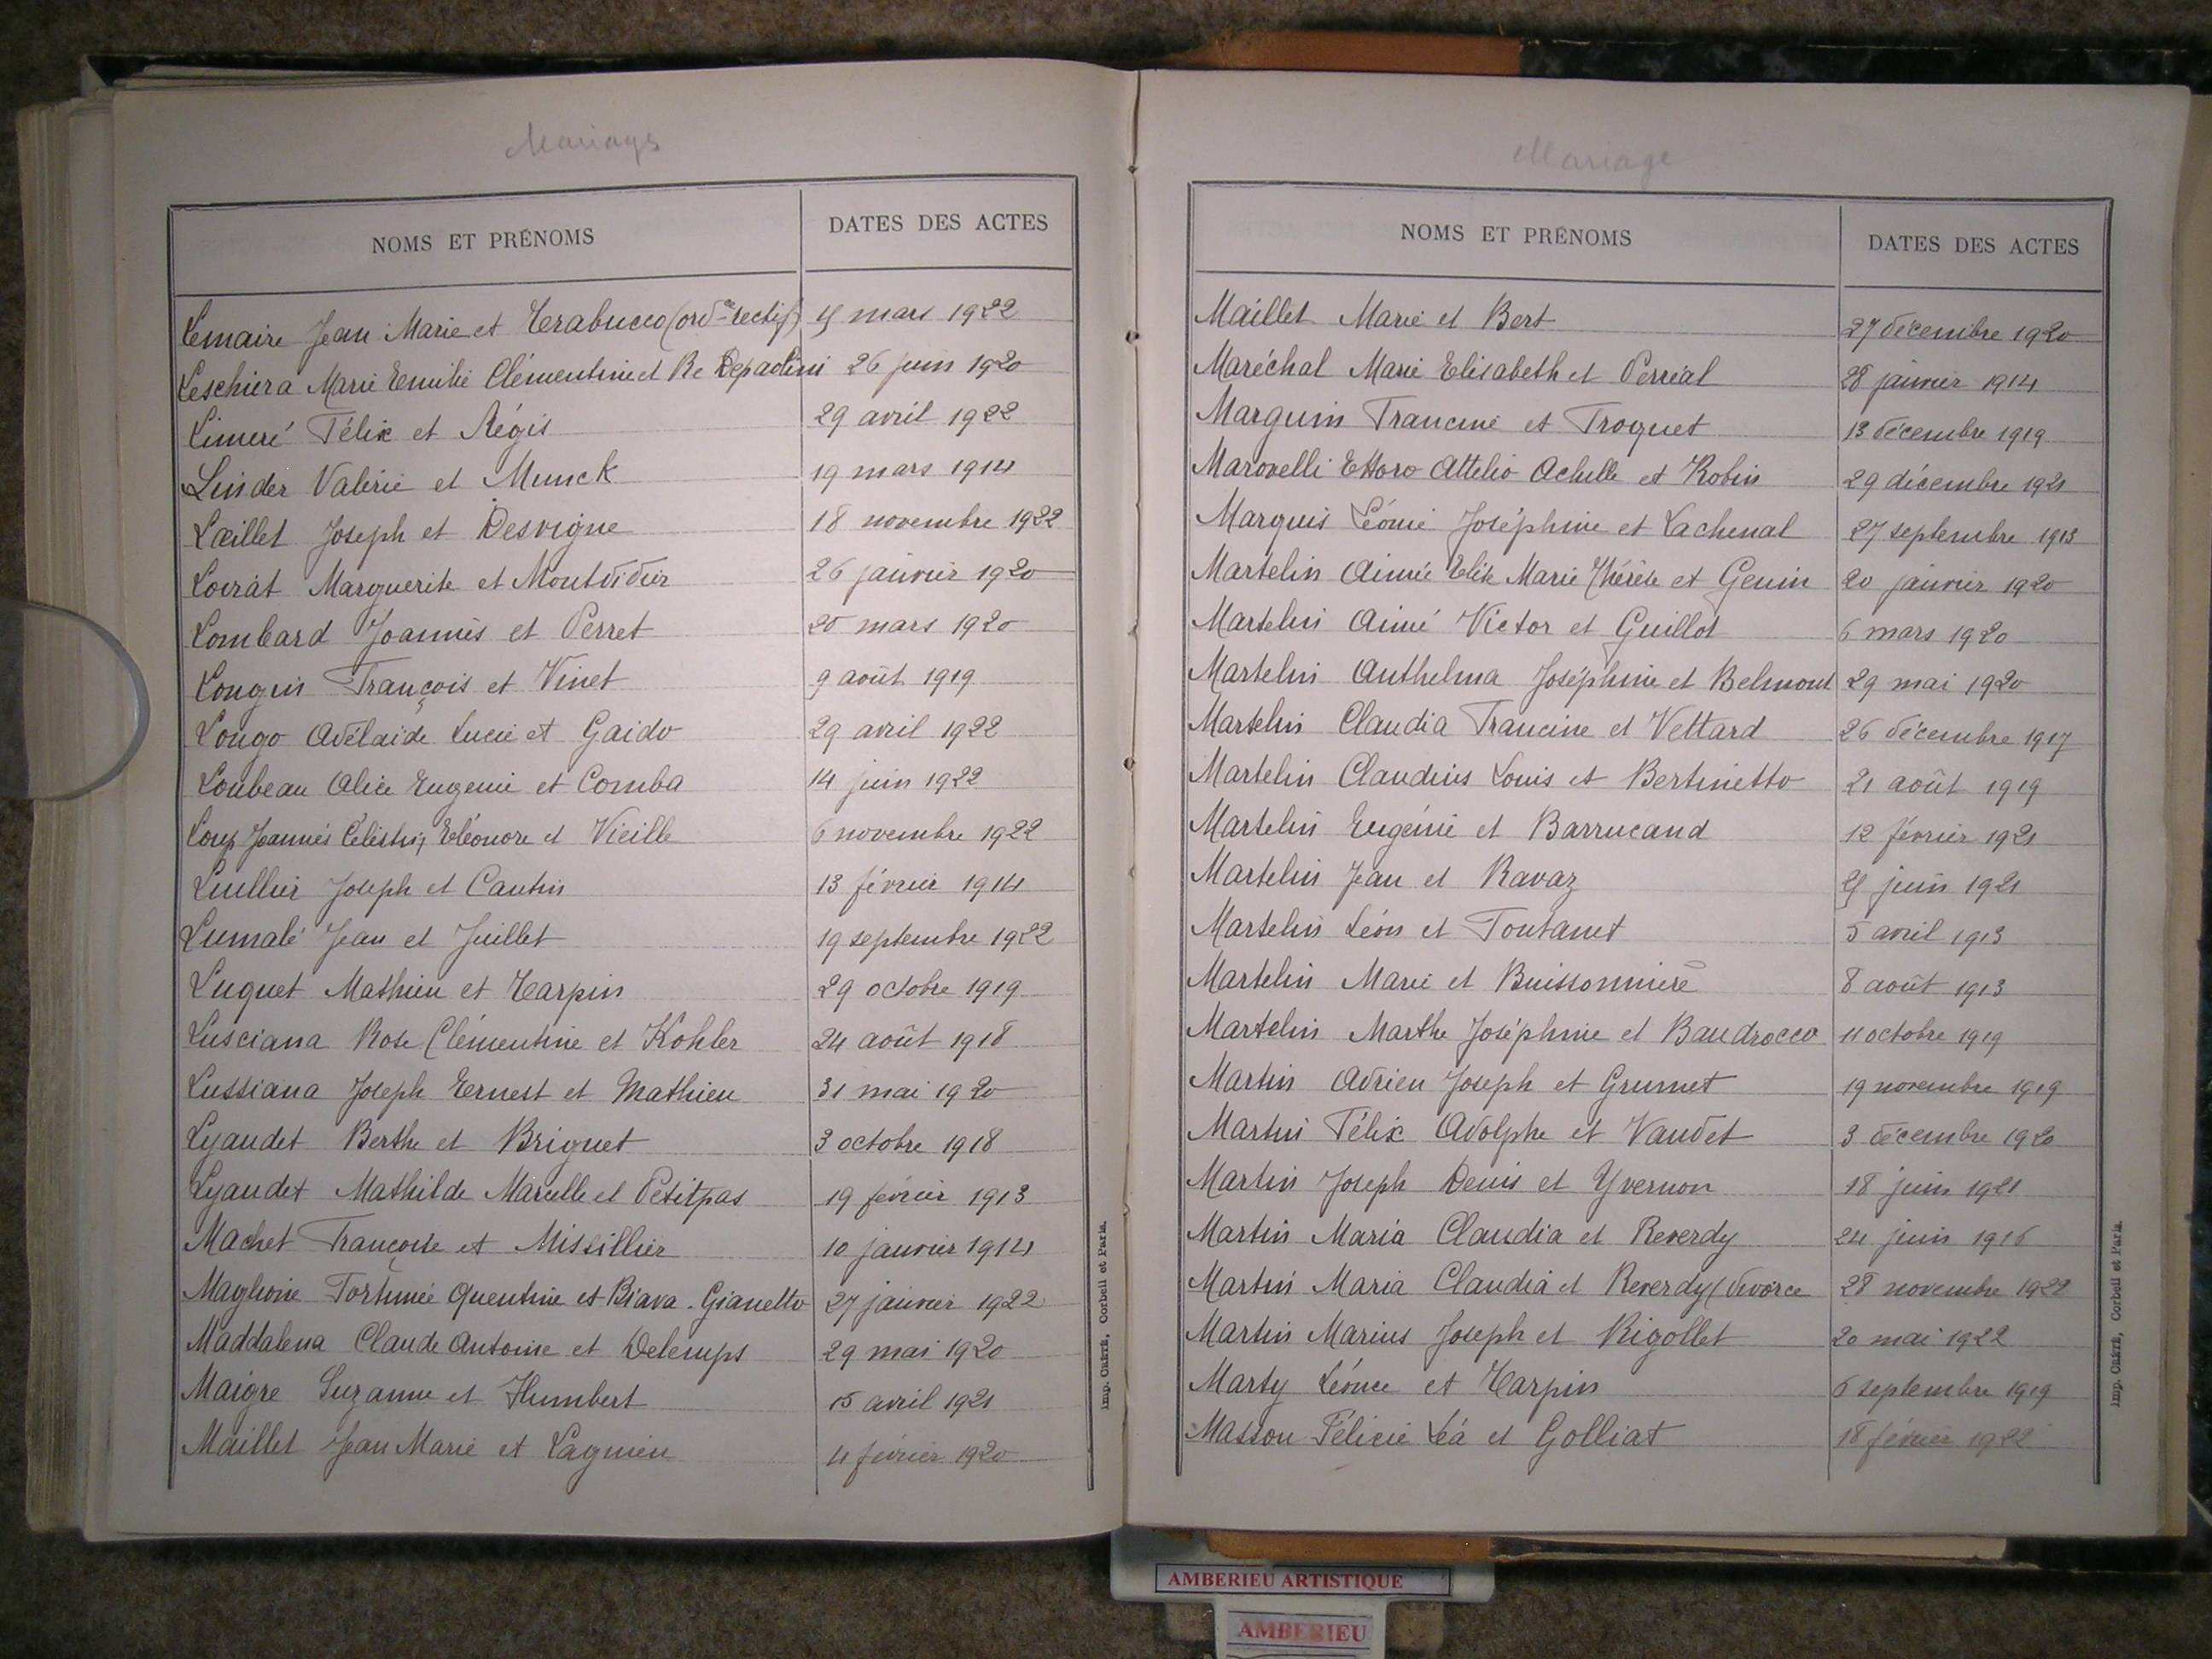 Mariags
NOMS ET PRÉNOMS DATES DES ACTES
Lemaire Jean Marie et Terabucco (ord. rectif) 4 mars 1922
Leschiera Marie Emilie Clémentine et Re Depaolini 26 juin 1920
Limeré Félix et Régis 29 avril 1922
Linder Valérie et Munck 19 mars 1914
Lœillet Joseph et Desvigne 18 novembre 1922
Loirat Marguerite et Montdidier 26 janvier 1920
Lombard Joannès et Perret 20 mars 1920
Longin François et Vinet 9 août 1919
Longo Adélaïde Lucie et Gaido 29 avril 1922
Loubeau Alice Eugenie et Comba 14 juin 1922
Loup Joannès Célestin, Eléonore et Vieille 6 novembre 1922
Lullier Joseph et Cautin 13 février 1914
Lumalé Jean et Juillet 19 septembre 1922
Luquet Mathieu et Tarpin 29 octobre 1919
Lusciana Rose Clémentine et Kohler 24 août 1918
Lussiana Joseph Ernest et Mathieu 31 mai 1920
Lyaudet Berthe et Briguet 3 octobre 1918
Lyaudet Mathilde Marcelle et Petitpas 19 février 1913
Machet Françoise et Missillier 10 janvier 1914
Maglione Fortunée Quentine et Biava-Gianetto 27 janvier 1922
Maddalena Claude Antoine et Delemps 29 mai 1920
Maigre Suzanne et Humbert 15 avril 1921
Maillet Jean Marie et Lagnieu 4 février 1920
Imp. Oakrä, Corbeil et Paris.
Mariage
NOMS ET PRÉNOMS DATES DES ACTES
Maillet Marie et Bert 27 décembre 1920
Maréchal Marie Elisabeth et Perréal 28 janvier 1914
Marguin Francine et Troquet 13 décembre 1919
Marovelli Ettoro Attelio Achille et Robin 29 décembre 1921
Marquis Léonie Joséphine et Lachenal 27 septembre 1913
Martelin Aimée Elise Marie Thérèse et Genin 20 janvier 1920
Martelin Aimé Victor et Guillot 6 mars 1920
Martelin Anthelma Joséphine et Belmont 29 mai 1920
Martelin Claudia Francine et Vettard 26 décembre 1917
Martelin Claudius Louis et Bertinetto 21 août 1919
Martelin Eugénie et Barrucand 12 février 1921
Martelin Jean et Ravaz 4 juin 1921
Martelin Léon et Fontanet 5 avril 1913
Martelin Marie et Buissonnière 8 août 1913
Martelin Marthe Joséphine et Baudrocco 11 octobre 1919
Martin Adrien Joseph et Grumet 19 novembre 1919
Martin Félix Adolphe et Vaudet 3 décembre 1920
Martin Joseph Denis et Yvernon 18 juin 1921
Martin Maria Claudia et Reverdy 24 juin 1916
Martin Maria Claudia et Reverdy (Divorce 28 novembre 1922
Martin Marius Joseph et Rigollet 20 mai 1922
Marty Léonce et Tarpin 6 septembre 1919
Masson Félicie Léa et Golliat 18 février 1922
Imp. Oakrä, Corbeil et Paris.
AMBERIEU ARTISTIQUE
AMBERIEU